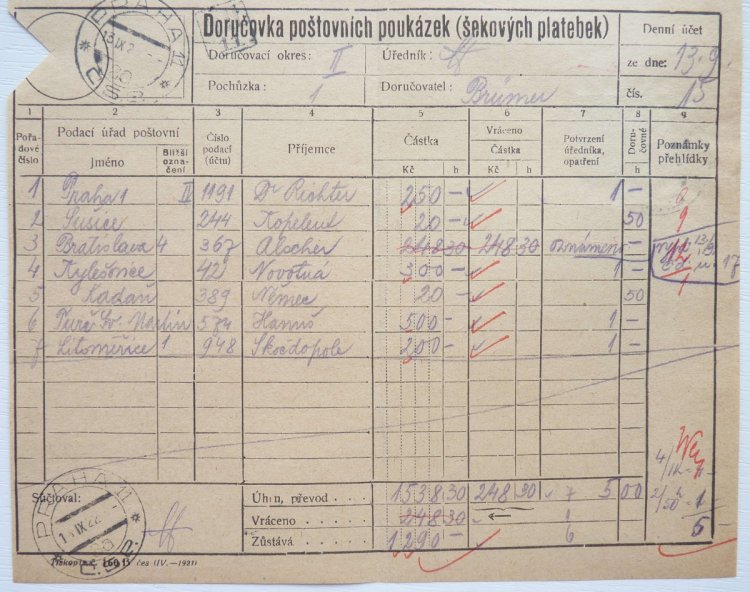 PRAHA 11
13 IX 2
Doručovka poštovních poukázek (šekových platebek)
Denní účet
Doručovací okres: II Úředník:
ze dne: 13.9.
Pochůzka: 1 Doručovatel: Brümer
čís. 15
1 2 3 4 5 6 7 8 9
Pořadové číslo Podací úřad poštovní Číslo podací (účtu) Příjemce Částka Vráceno Potvrzení úředníka, opatření Doručovné Poznámky přehlídky
Jméno Bližší označení Kč h Částka Kč h h
1 Praha 1 II 1191 Dr Richter 250 - 1 -
2 Sušice 244 Kopelent 20 - 50
3 Bratislava 4 367 Alscher 248 30 248 30 oznámeno -
4 42 Novotná 300 - 1 -
5 Kadaň 389 Němec 20 - 50
6 Turč. Sv. Martin 574 Hanuš 500 - 1 -
7 Litoměřice 1 948 Skočdopole 200 - 1 -
Súčtoval: Úhrn, převod . . . . 1538 30 248 30 7 5 00
Vráceno . . . . . 248 30 ← 1
Zůstává . . . . . 1290 - 6
5 -
PRAHA 11
Tiskopis č. 160 b čes (IV.—1921)